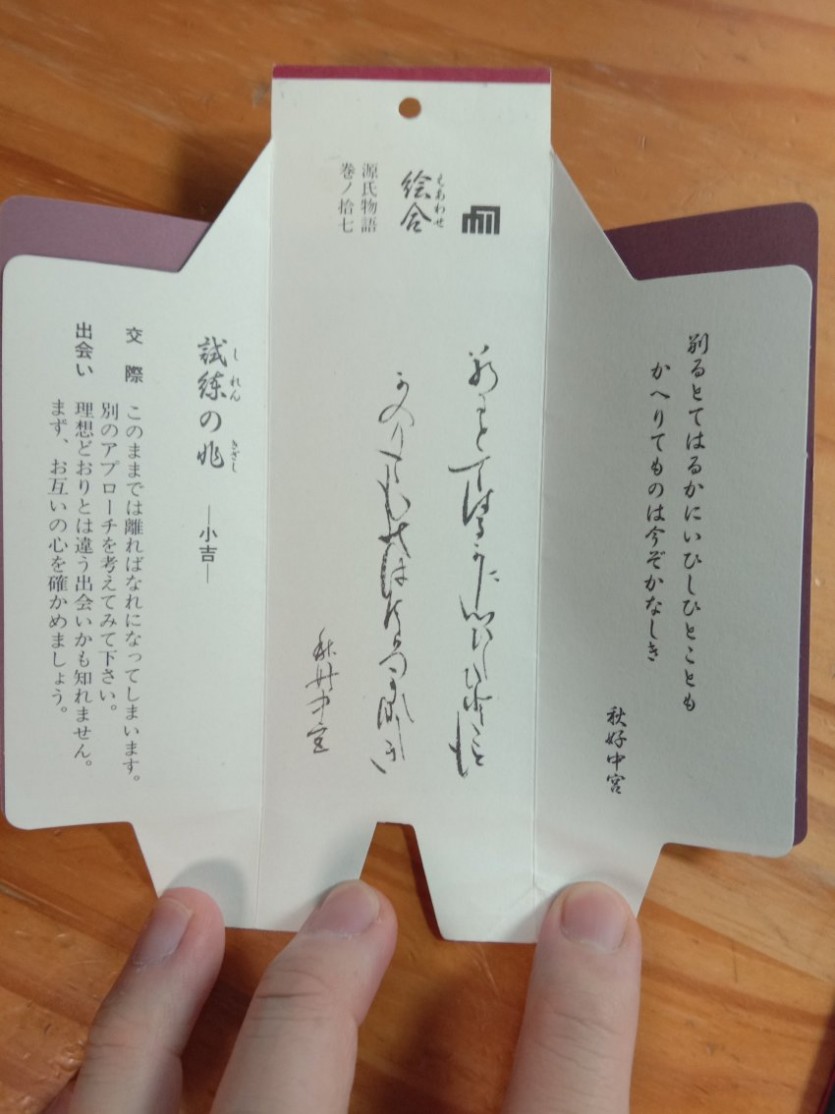 別るとてはるかにいひしひとことも
かへりてものは今ぞかなしき
秋好中宮
絵合
ゑあわせ
源氏物語
巻ノ拾七
別るとてはるかにいひしひとことも
かへりてものは今ぞかなしき
秋好中宮
試練の兆 ―小吉―
しれん きざし
交際 このままでは離ればなれになってしまいます。
別のアプローチを考えてみて下さい。
出会い 理想どおりとは違う出会いかも知れません。
まず、お互いの心を確かめましょう。